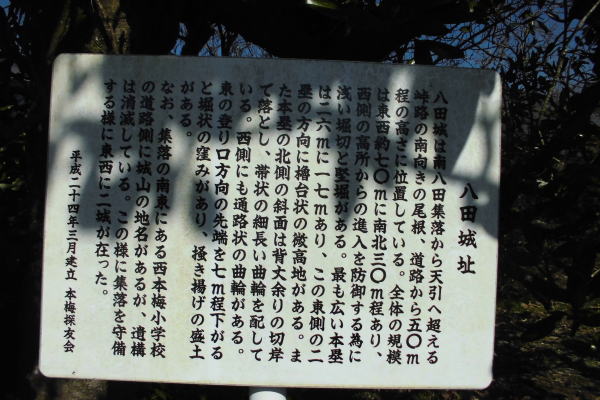 八田城址
八田城は南八田集落から天引へ超える
峠路の南向きの尾根、道路から五〇m
程の高さに位置している。全体の規模
は東西約七〇mに南北三〇m程あり、
西側の高所からの進入を防御する為に
浅い堀切と堅堀がある。最も広い本塁
は二六mに一七mあり、この東側の二
塁の方向に櫓台状の微高地がある。ま
た本塁の北側の斜面は背丈余りの切岸
て落とし、帯状の細長い曲輪を配して
いる。西側にも通路状の曲輪がある。
東の登り口方向の先端を七m程下がる
と堀状の窪みがあり、掻き揚げの盛土
がある。
なお、集落の南東にある西本梅小学校
の道路側に城山の地名があるが、遺構
は消滅している。この様に集落を守備
する様に東西に二城が在った。
平成二十四年三月建立 本梅探友会